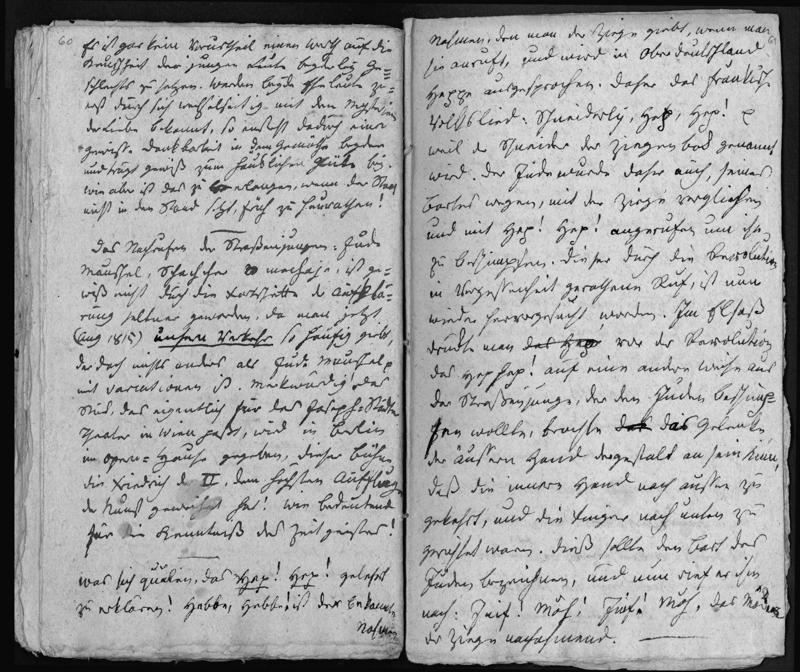 60
Es ist gar kein Vorurtheil einen Werth auf die
Keuschheit der jungen Leute beyderley Ge-
schlechts zu setzen. Werden beyde Eheleute zu-
erst durch sich wechselseitig mit den Mysterien
der Liebe bekannt, so entsteht dadurch eine
gewisse Dankbarkeit in dem Gemüthe beyder
und trägt gewiß zum häuslichen Glücke bey.
Wie aber ist das zu erlangen, wenn der Staat
nicht in den Stand setzt, früh zu heurathen!
Das Nachrufen der Straßenjungen: Jude
Mauschel, Schacher machai, ist ge-
wiß nicht durch die Fortschritte der Aufklä-
rung seltner geworden, da man jetzt
(Aug 1815) unsern Verkehr so häufig giebt,
der doch nichts anders als Jude Mauschel
mit Variationen ist. Merkwürdig daß
Stück, das eigentlich für das Joseph-Städter
Theater in Wien paßt, wird in Berlin
im Opern-Hause gegeben, dieser Bühne
die Friedrich d. II, dem höchsten Aufschwunge
der Kunst gewidmet hat! Wie bedeutend
für die Kenntniß des Zeitgeistes!
Was sich quälen, das Hep! Hep! gelehrt
zu erklären! Hebbe, Hebbe! ist der bekannte
Nahmen
Nahmen, den man der Ziege giebt, wenn man
sie anruft, und wird in Oberdeutschland
Heppe ausgesprochen. Daher das fränkische
Volkslied: Schneiderley, Hep, Hep!
weil der Schneider der Ziegenbock genannt
wird. Der Jude wurde daher auch, seines
Bartes wegen, mit der Ziege verglichen
und mit Hep! Hep! angerufen um ihn
zu beschimpfen. Dieser durch die Revolution
in Vergessenheit gerathene Ruf, ist nun
wieder hervorgesucht worden. Im Elsaß
drückte man das Hep vor der Revolution
das Hep hep! auf eine andere Weise aus
der Straßenjunge, der den Juden beschimp-
fen wollte, brachte das das Gelenke
der äussern Hand dergestalt an sein Kinn,
daß die innere Hand nach aussen zu
gekehrt, und die Finger nach unten zu
gerichtet waren. Dieß sollte den Bart des
Juden bezeichnen, und nun rief er ihm
nach: Jüf! Mäh! Jüf! Mäh, das Mäh
der Ziege nachahmend.